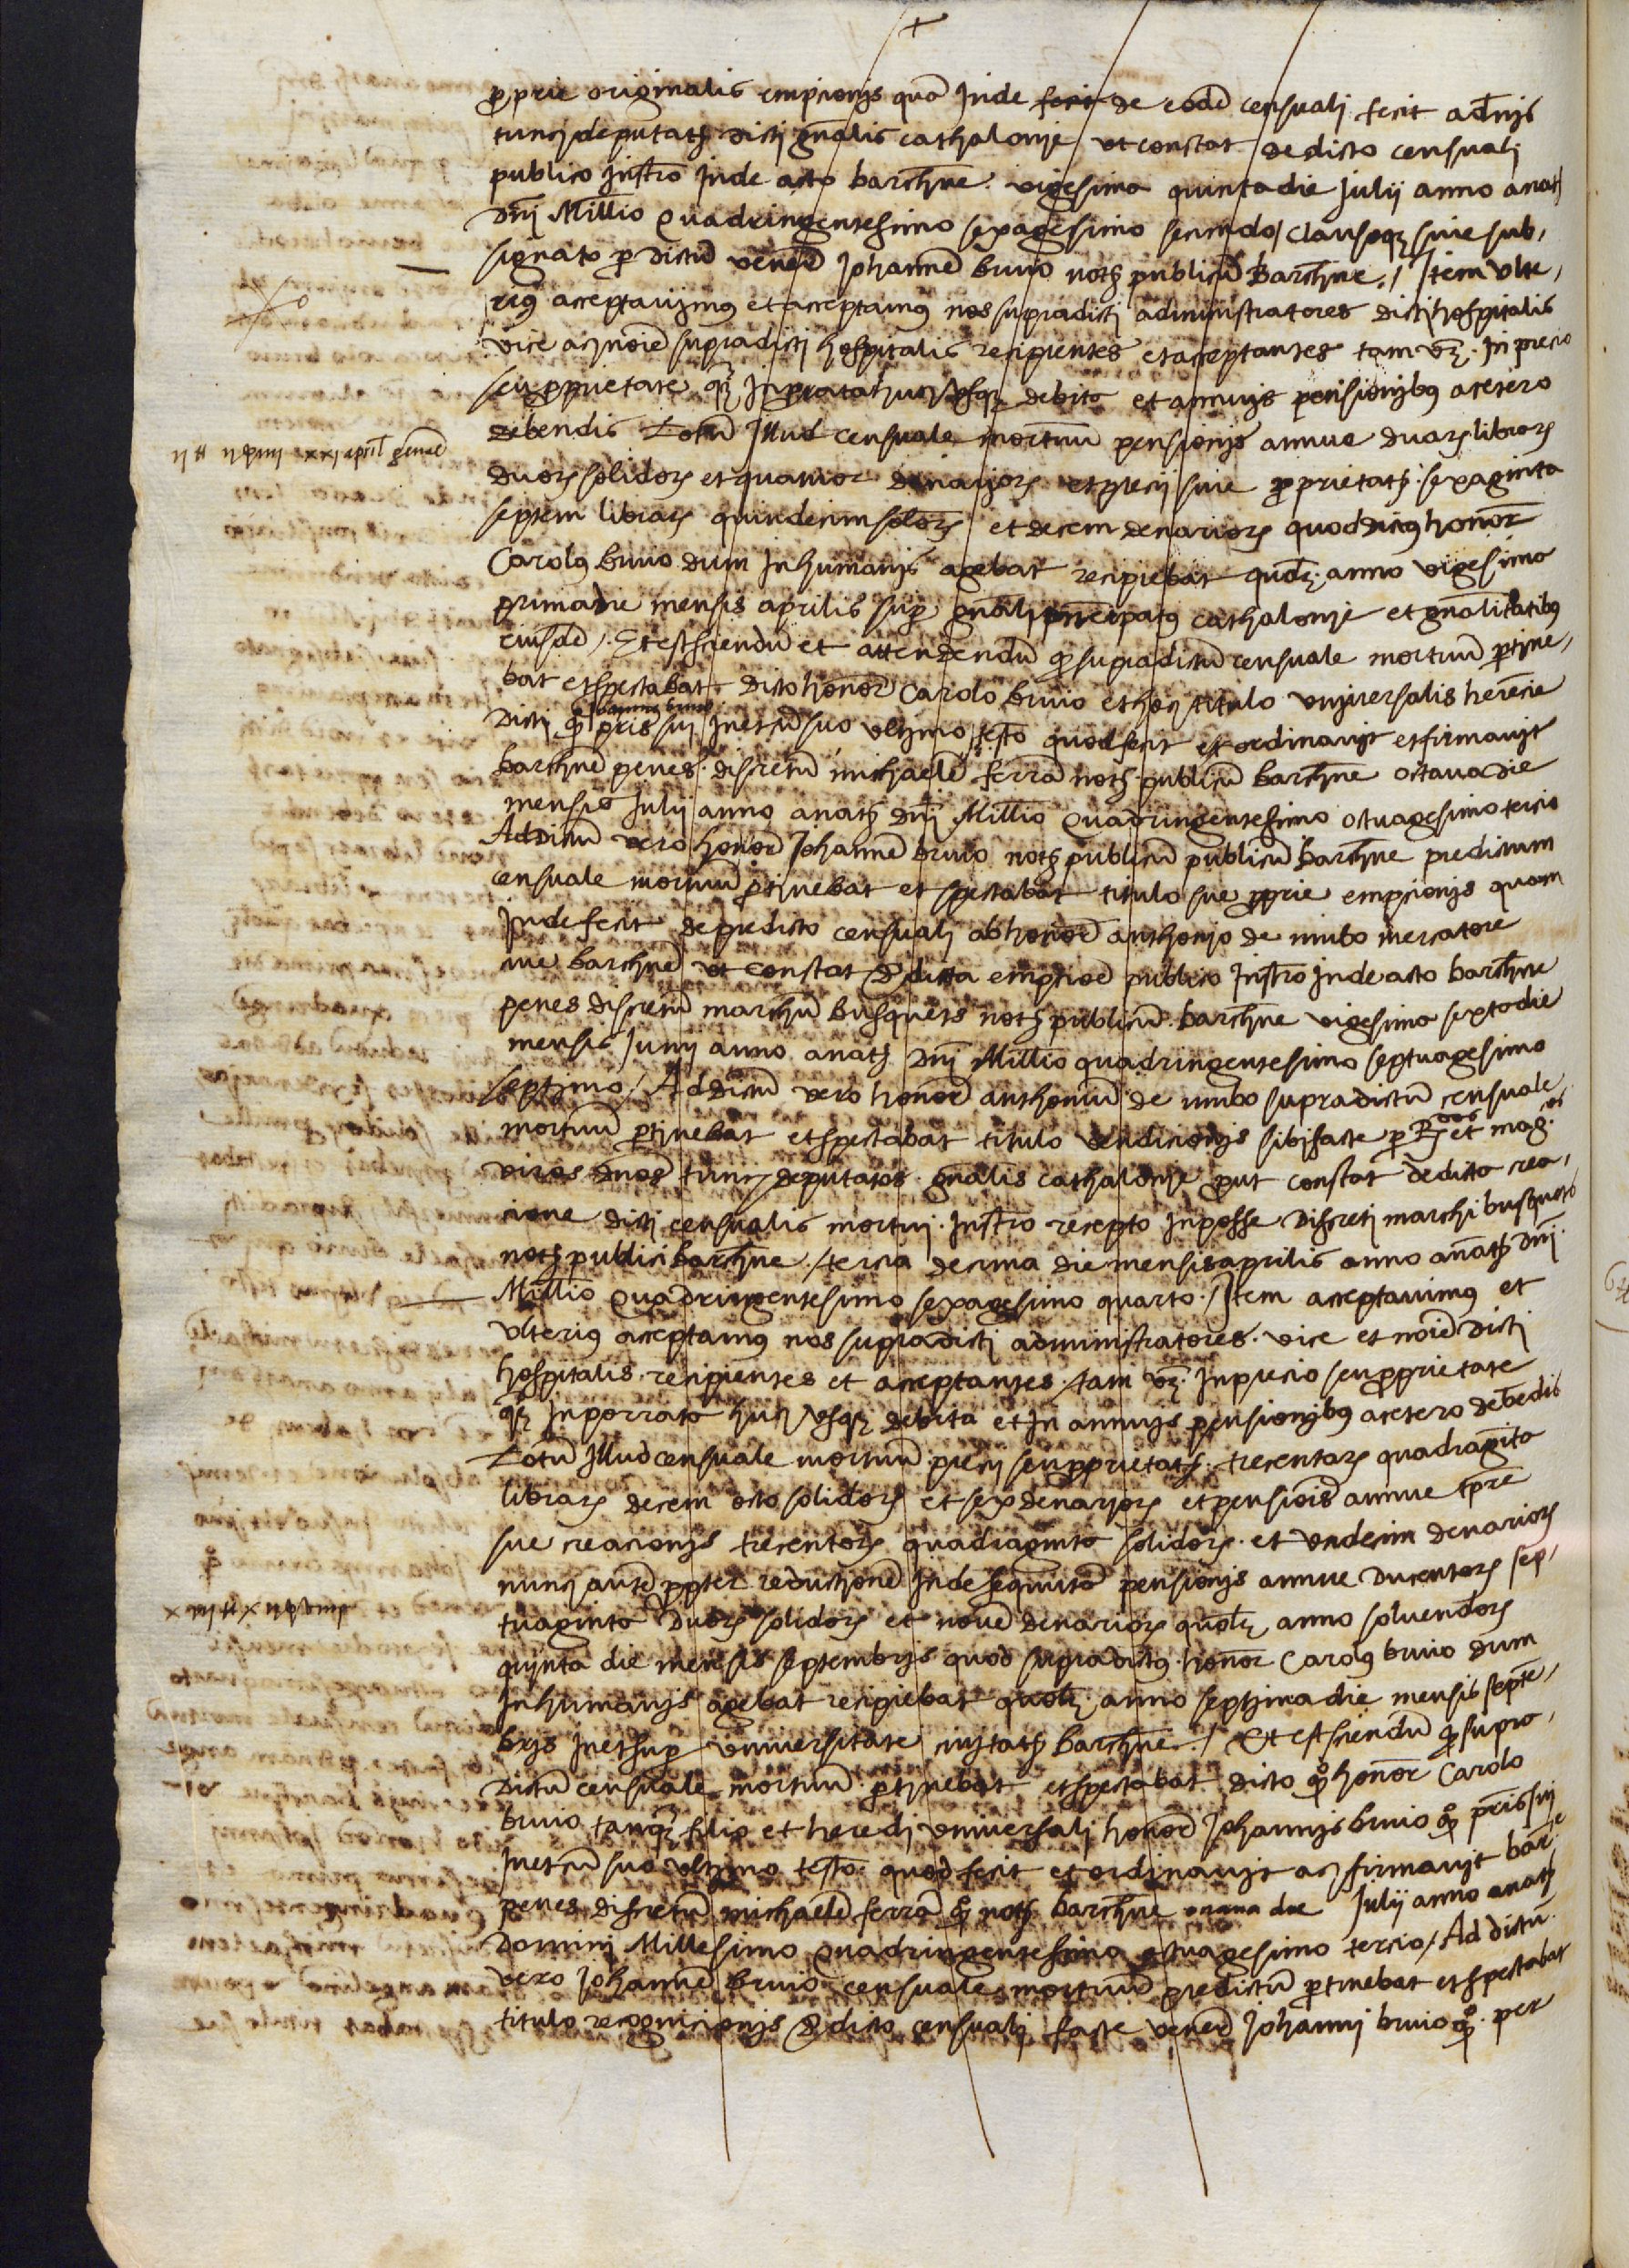 pprie originalis empcionis qua Inde fecit de eode censuali fecit a dnis
tunc deputatis dicti gnalis cathalonie ut constat de dicto censuali
publico Instro Inde acto barchne vigesima quinta die Julii anno a natte
Dni Millio Quadringentesimo sexagesimo secundo / clausoqz sive sub,
signato p dictu vened Johanne bruno noth publicu Barchne. / Item ulte,
rius acceptavimus et acceptamus nos supradicti administratores dicti hospitalis
vice ac noie supradicti hospitalis recipientes et acceptantes tam vz. In precio
seu pprietate qz In porrata huc usqz debita et annuis pensionibus a cetero
debendis Totu Illud censuale mortuu pensionis annue duarz librarz
duorz solidorz et quatuor denariorz et precii sive pprietatis sexaginta
septem librarz quindecim solorz et decem denariorz quod dictus honor
Carolus bruno dum In humanis agebat recipiebat quolz anno vigesimo
prima die mensis aprilis sup gnali principatus cathalonie et gnalitatibus
eiusde / Et est sciendu et attendendu q supradictu censuale mortuu ptine,
bat et spectabat dicto honor Carolo bruno et hoc titulo universalis herencie
Dicti qo Joannis bruno pris sui Inet cu suo ultimo testo quod fecit et ordinavit et firmavit
barchne penes discretu michaele ferra noth publicu barchne octava die
mensis Julii anno a natte dni Millio Quadringentesimo octuagesimo tercio
Ad dictu vero honore Johanne bruno noth publicu publicu barchne predictum
censuale mortuu ptinebat et spectabat titulo sue pprie empcionis quam
Inde fecit de predicto censuali ab honore anthonio de nimbo mercatore
cive barchne ut constat de dicta empcioe publico Instro Inde acto barchne
penes discretu marchu busquets noth publicu barchne vigesimo sexto die
mensis Junii anno a natte Dni Millio quadringentesimo septuagesimo
septimo / Ad dictu vero honore anthoniu de nimbo supradictu censuale
mortuu ptinebat et spectabat titulo vendicionis sibi facte p R.dos et mag.cos
viros dnos tunc deputatos gnalis cathalonie put constat de dicta crea,
cione dicti censualis mortui Instro recepto In posse discreti marchi busquets
noth publici barchne / tercia decima die mensis aprilis anno a natte dni
Millio Quadringentesimo sexagesimo quarto / Item acceptavimus et
ulterius acceptamus nos supradicti administratores vice et noie dicti
hospitalis recipientes et acceptantes tam vz. In precio seu pprietate
qz In porrata huc usqz debita et In annuis pensionibus a cetero debedis
Totu Illud censuale mortuu precii seu pprietatis trecentarz quadraginta
librarz decem octo solidorz et sex denariorz et pensiois annue tpre
sue creacionis trecentorz quadraginta solidorz et undecim denariorz
nunc aute ppter reductione Inde sequuta pensionis annue ducentorz sep,
tuaginta duorz solidorz et nove denariorz quolz anno solvendorz
quinta die mensis septembris quod supradictus honor Carolus bruno dum
In humanis agebat recipiebat quolz anno septima die mensis septe,
bris In et sup universitate civitatis barchne / Et est sciendu q supra,
dictu censuale mortuu ptinebat et spectabat dicto qo honor Carolo
bruno tanqz filio et heredi universali honor Johannis bruno qo pris sui
Inet cu suo ultimo testo quod fecit et ordinavit ac firmavit barne
penes discretu michaele ferra qo noth barchne octava die Julii anno a natte
Domini Millesimo Quadringentesimo octuagesimo tercio / Ad dictu
vero Johanne bruno censuale mortuu predictu ptinebat et spectabat
titulo recognicionis de dicto censuali facte vened Johanni bruno qo per